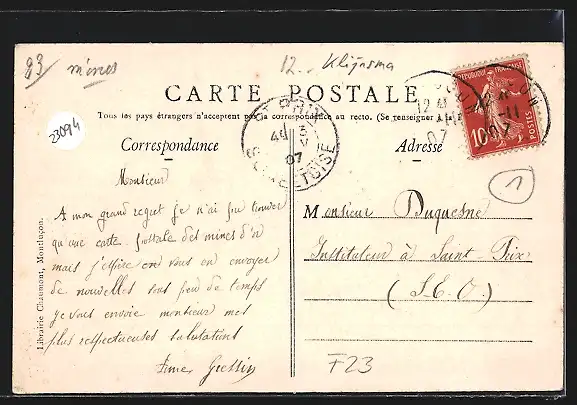 83
mines
12. Klijasma
CARTE POSTALE
Tous les pays étrangers n'acceptent pas la correspondance au recto. (Se renseigner à la
23094
Correspondance
Adresse
REPUBLIQUE FRANÇAISE
POSTES
10
12
11
07
07
ST PRIX
4
3
V
07
SEINE-ET-OISE
1
Monsieur
A mon grand regret je n'ai pu trouver
qu'une carte postale des mines d'or
mais j'espère en vous en envoyer
de nouvelles sous peu de temps
je vous envoie monsieur mes
plus respectueuses salutations
Monsieur Duquesne
Instituteur à Saint-Prix
(S.E.O.)
F23
Librairie Chaumont, Montluçon.